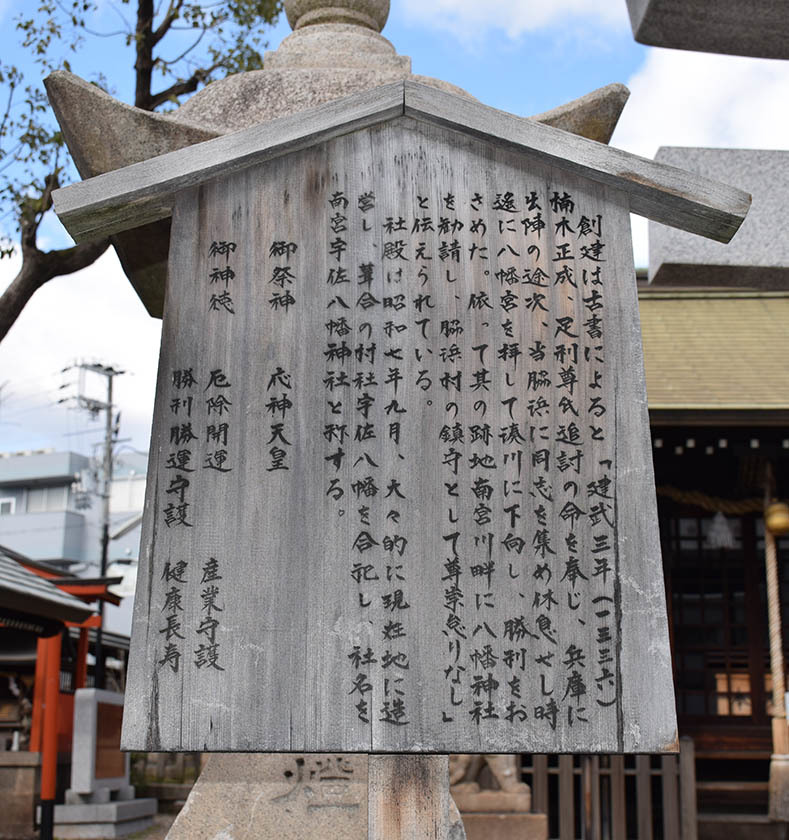 創建は古書によると「建武三年(一三三六)
楠木正成、足利尊氏追討の命を奉じ、兵庫に
出陣の途次、当脇浜に同志を集め休息せし時
遙に八幡宮を拝して湊川に下向し、勝利をお
さめた。依って其の跡地南宮川畔に八幡神社
を勧請し、脇浜村の鎮守として尊崇怠りなし」
と伝えられている。
社殿は昭和七年九月、大々的に現在地に造
営し、葺合の村社宇佐八幡を合祀し、社名を
南宮宇佐八幡神社と称する。
御祭神 応神天皇
御神徳 厄除開運 産業守護
勝利勝運守護 健康長寿
燈